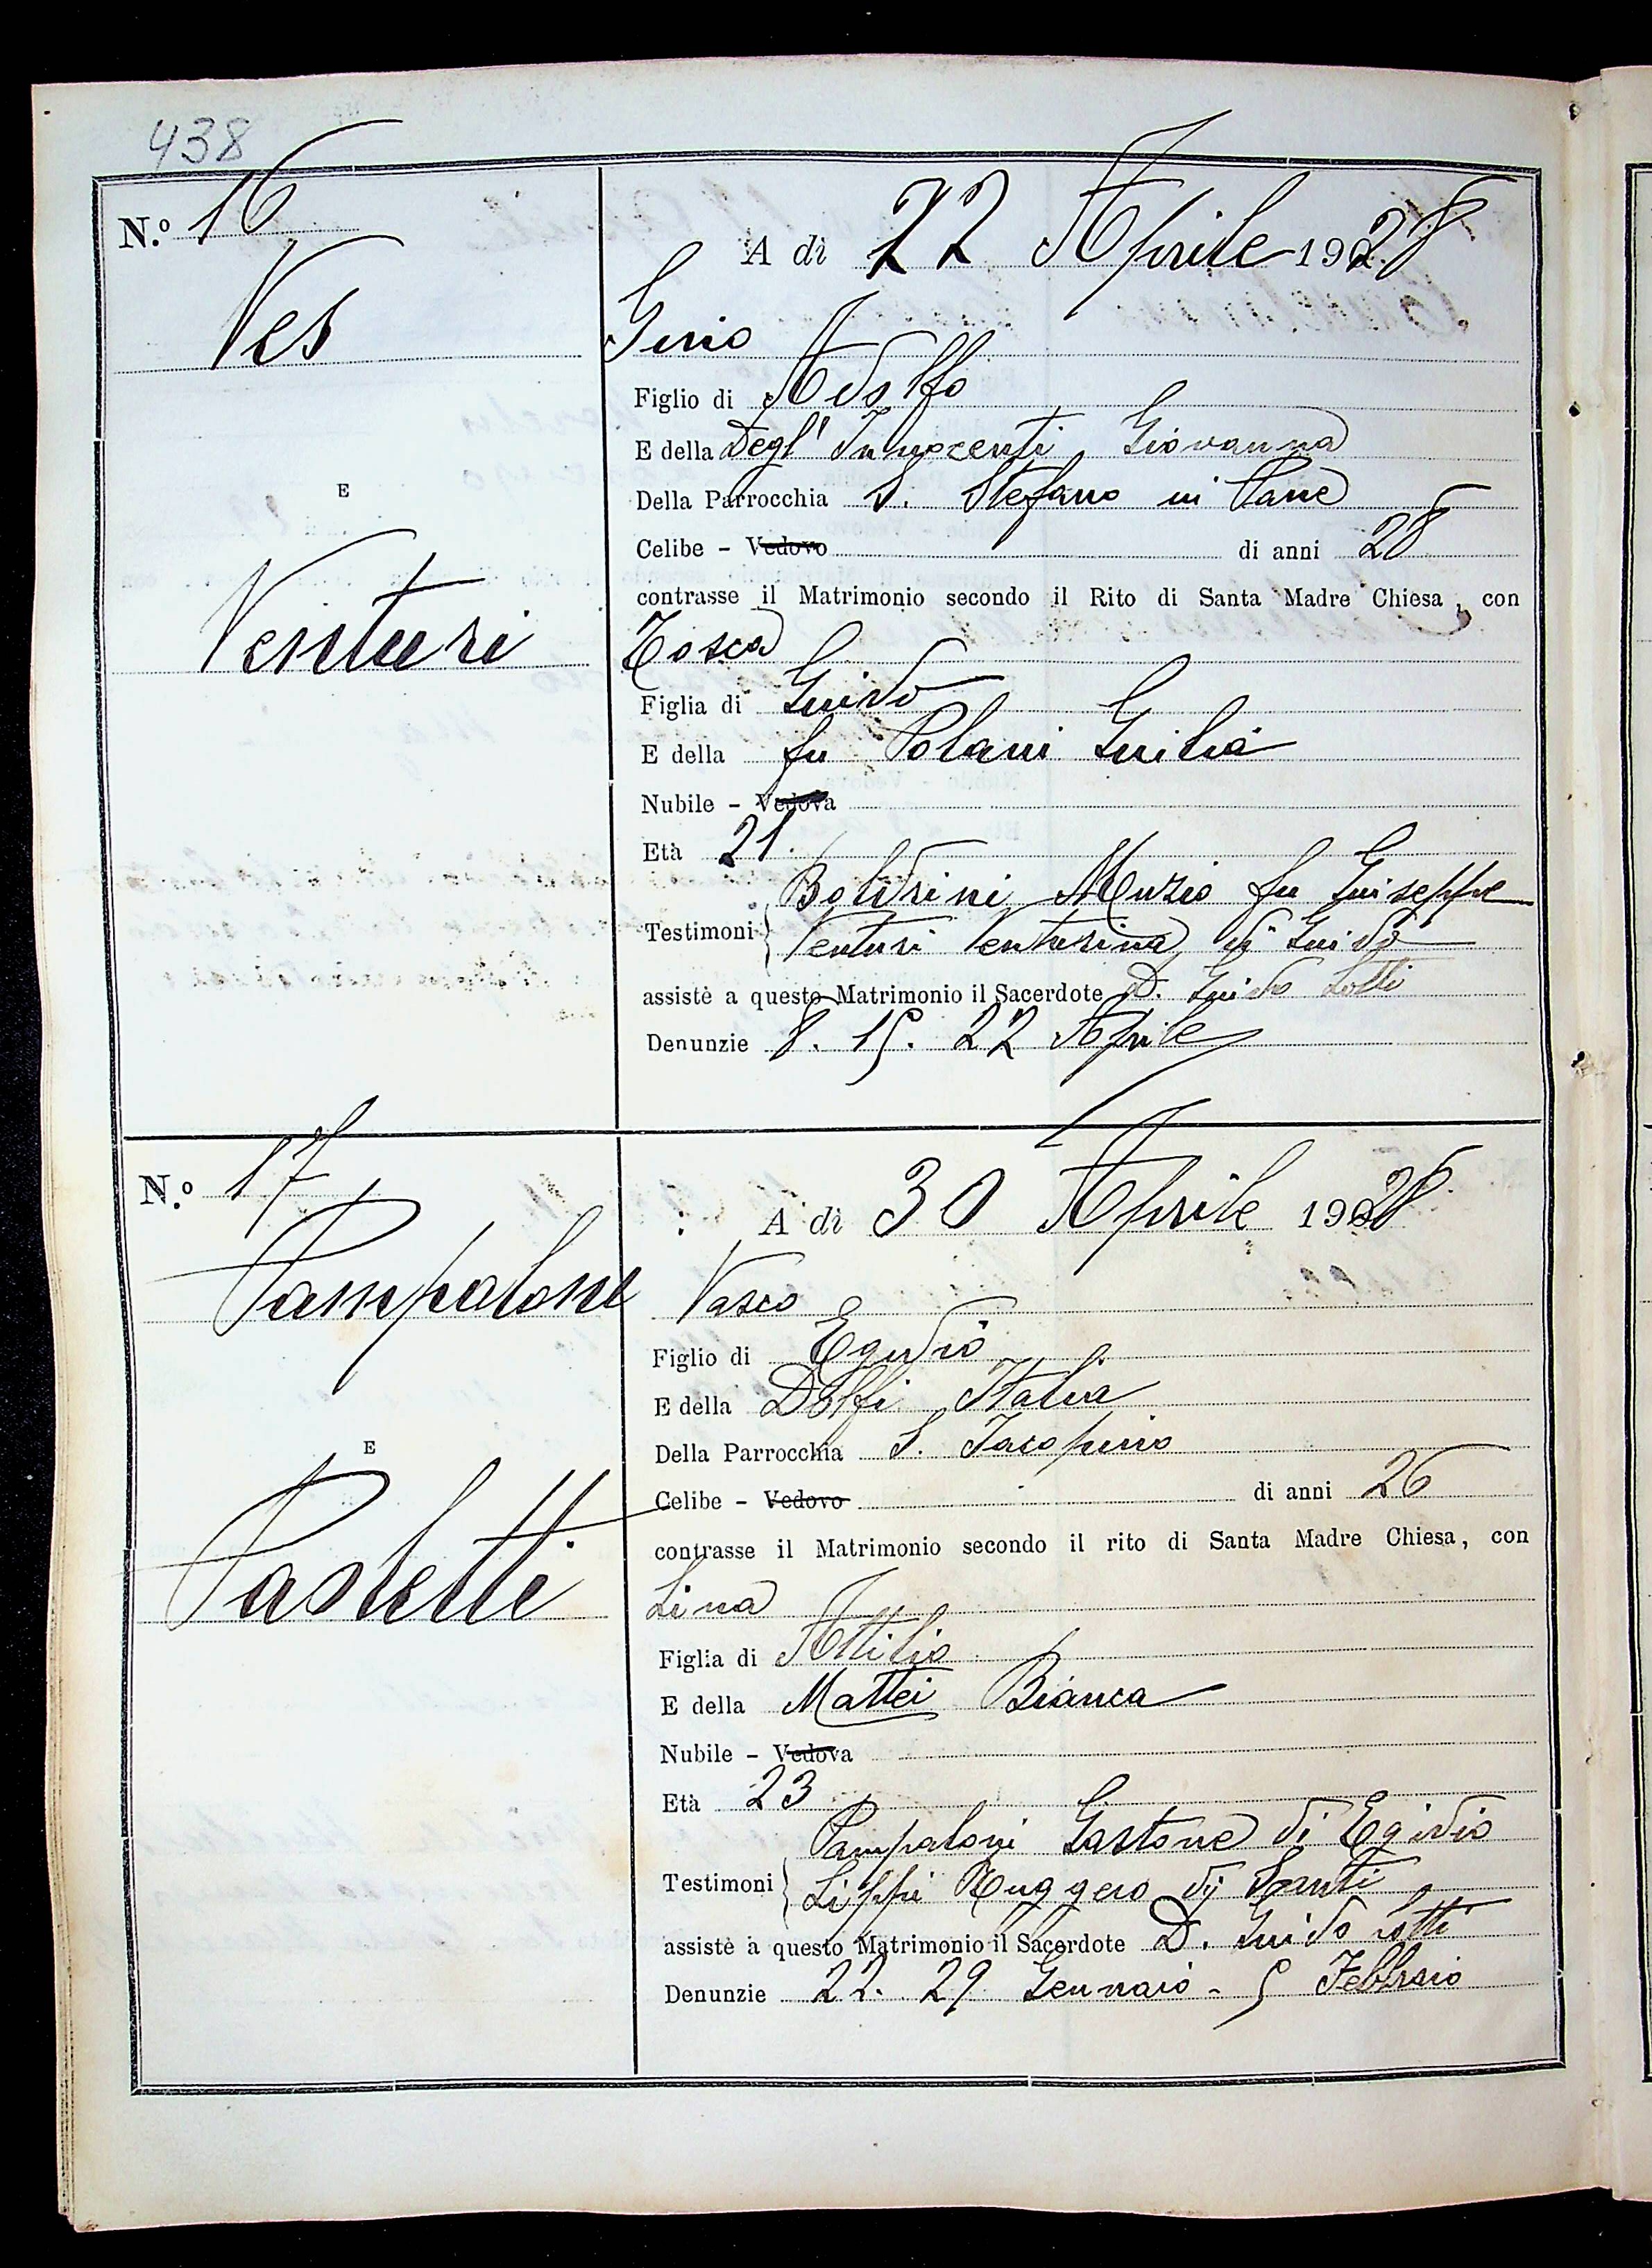 438
N.º 16
A dì 22 Aprile 1928
Ves
Gino
Figlio di Adolfo
E della Degl' Innocenti Giovanna
E
Della Parrocchia S. Stefano in Pane
Celibe - Vedovo di anni 28
contrasse il Matrimonio secondo il Rito di Santa Madre Chiesa, con
Venturi
Tosca
Figlia di Guido
E della fu Polani Giulia
Nubile - Vedova
Età 21.
Boldrini Muzio fu Giuseppe
Testimoni
Venturi Venturina di Guido
assistè a questo Matrimonio il Sacerdote D. Guido Lotti
Denunzie 8. 15. 22 Aprile
N.º 17
A dì 30 Aprile 1928
Pampaloni
Vasco
Figlio di Egidio
E della Dolfi Italia
E
Della Parrocchia S. Jacopino
Celibe - Vedovo di anni 26
contrasse il Matrimonio secondo il rito di Santa Madre Chiesa, con
Paoletti
Lina
Figlia di Attilio
E della Mattei Bianca
Nubile - Vedova
Età 23
Pampaloni Gastone di Egidio
Testimoni
Lippi Ruggero di Santi
assistè a questo Matrimonio il Sacerdote D. Guido Lotti
Denunzie 22. 29 Gennaio - 5 Febbraio